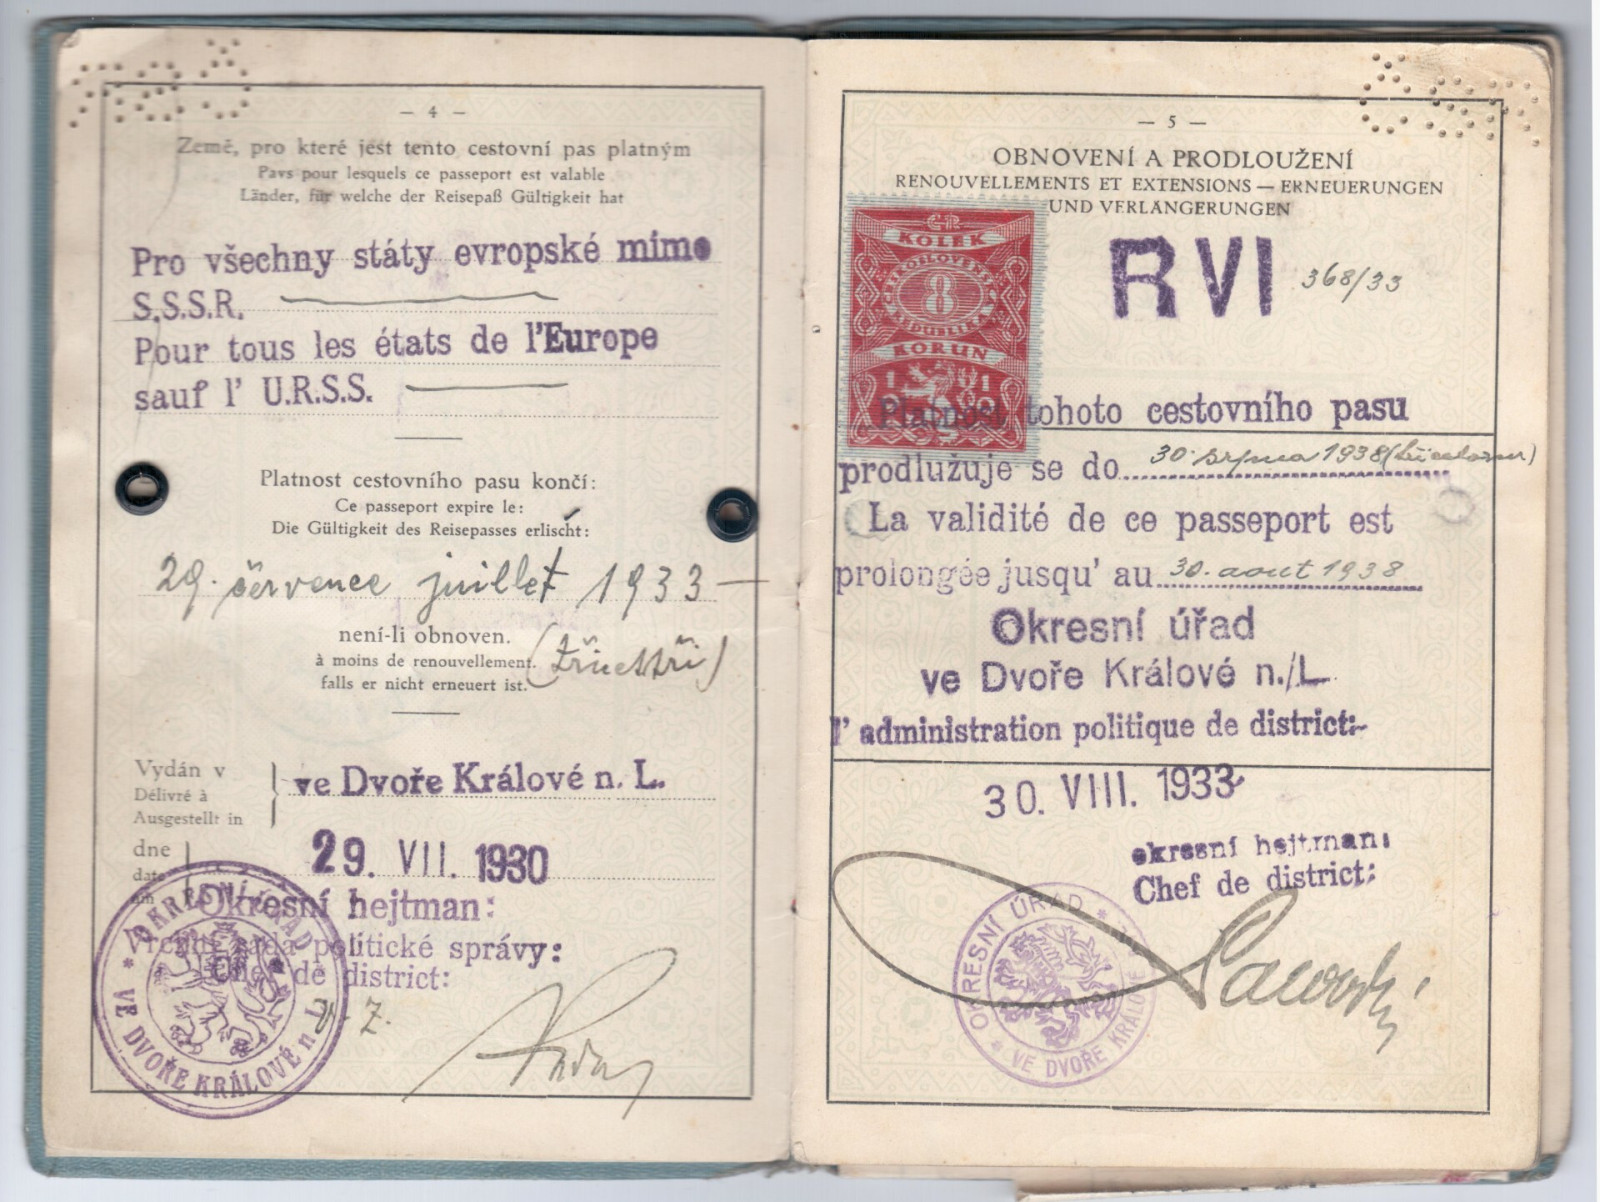 — 4 —
Země, pro které jest tento cestovní pas platným
Pays pour lesquels ce passeport est valable
Länder, für welche der Reisepaß Gültigkeit hat
Pro všechny státy evropské mimo
S.S.S.R.
Pour tous les états de l'Europe
sauf l' U.R.S.S.
Platnost cestovního pasu končí:
Ce passeport expire le:
Die Gültigkeit des Reisepasses erlischt:
29. července juillet 1933 —
není-li obnoven.
à moins de renouvellement.
(třicettři)
falls er nicht erneuert ist.
Vydán v
Délivré à
Ausgestellt in
ve Dvoře Králové n. L.
dne
date
am
29. VII. 1930
Okresní hejtman:
Vrchní rada politické správy:
Chef de district:
v. z.
OKRESNÍ ÚŘAD * VE DVOŘE KRÁLOVÉ n. L. *
— 5 —
OBNOVENÍ A PRODLOUŽENÍ
RENOUVELLEMENTS ET EXTENSIONS — ERNEUERUNGEN
UND VERLÄNGERUNGEN
ČR
KOLEK
ČESKOSLOVENSKÁ
8
REPUBLIKA
KORUN
RVI 368/33
Platnost tohoto cestovního pasu
prodlužuje se do 30. srpna 1938
La validité de ce passeport est
prolongée jusqu' au 30. aout 1938
Okresní úřad
ve Dvoře Králové n./L.
l' administration politique de district:
30. VIII. 1933
okresní hejtman:
Chef de district:
* OKRESNÍ ÚŘAD * VE DVOŘE KRÁLOVÉ